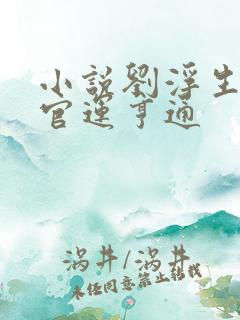 小說劉浮生
官運亨通
涡井/涡井
未经同意禁止转载